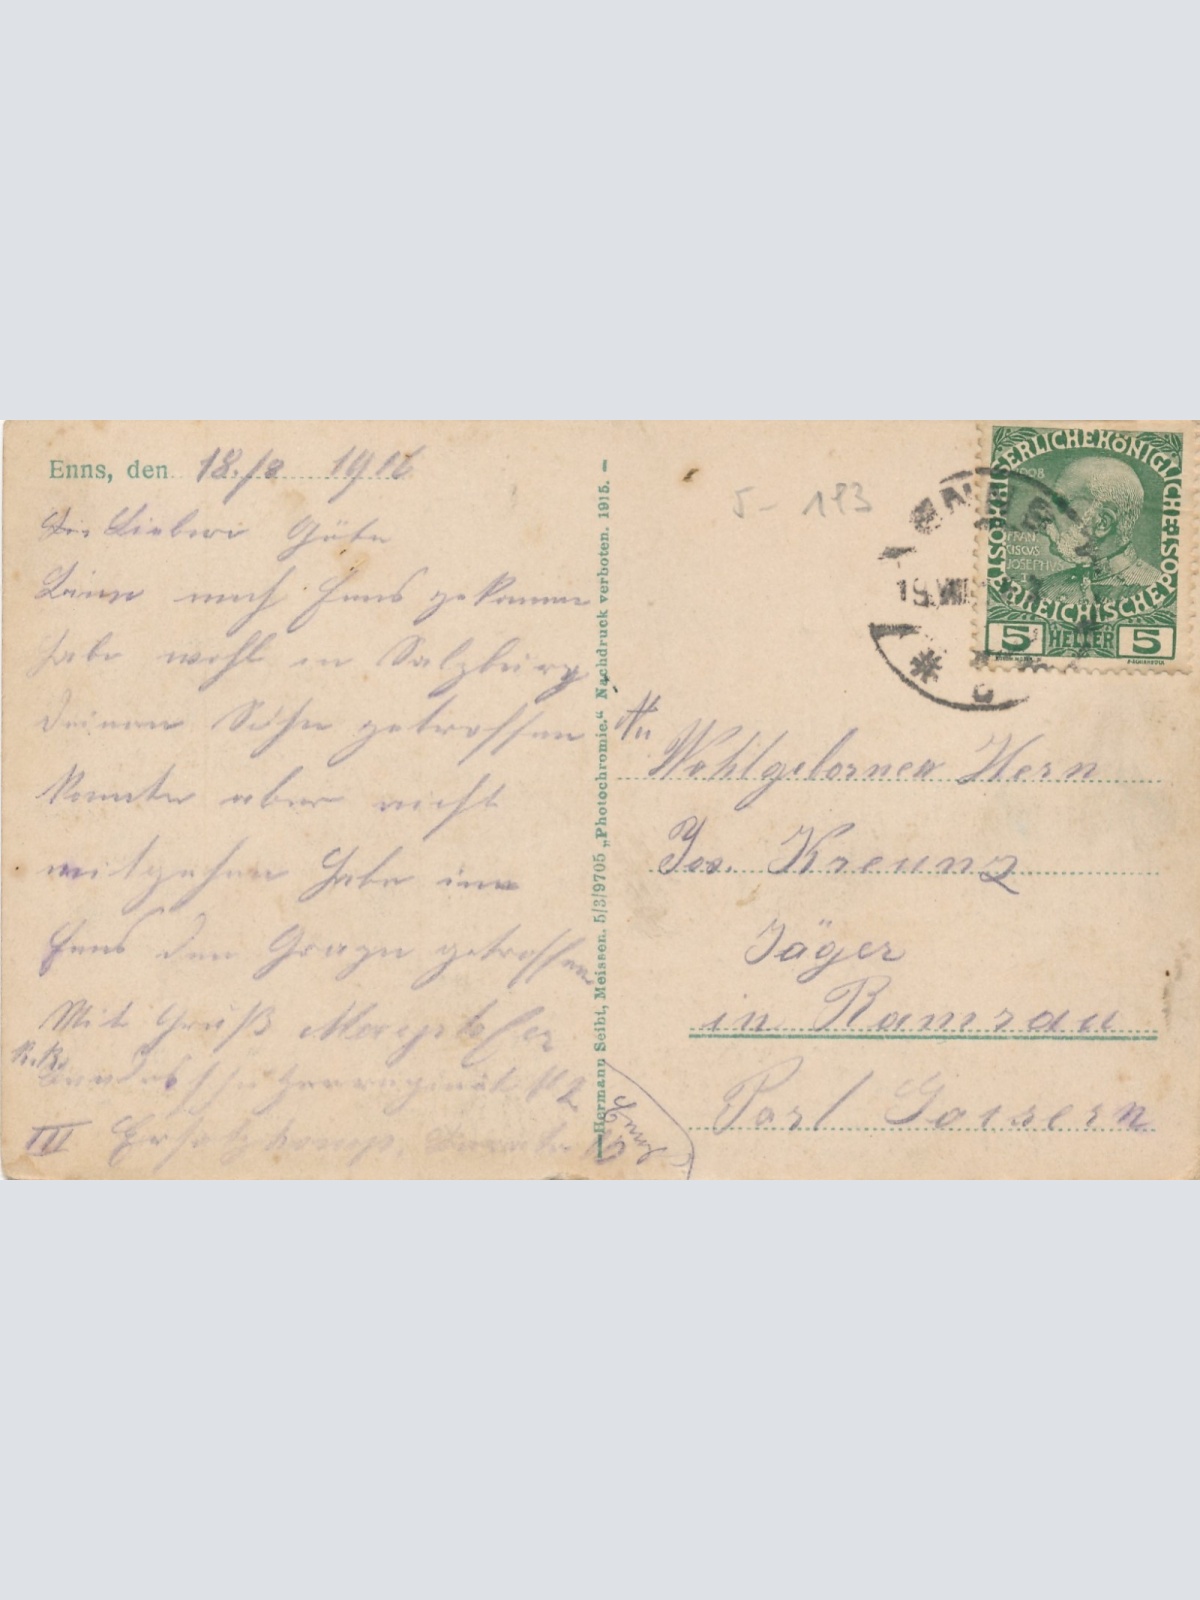 Enns, den 18./8 1916
Lieber Göte
Bin nach Enns gekomen
habe wohl in Salzburg
deinen Sohn getroffen
konnte aber nicht
mitgehen habe in
Enns den Grazn getroffen
Mit Gruß
K. K.
III Ersatzkomp.
Enns
Hermann Seibt, Meissen. 5/3/9705 „Photochromie.“ Nachdruck verboten. 1915.
5 - 193
19.VIII
KAISERLICHEKÖNIGLICHE
ÖSTERREICHISCHEPOST
1908
FRAN
CISCVS
JOSEPHVS
5 HELLER 5
An
Wohlgebornen Hern
Jos. Kreunz
Jäger
in Ramsau
Posl Goisern